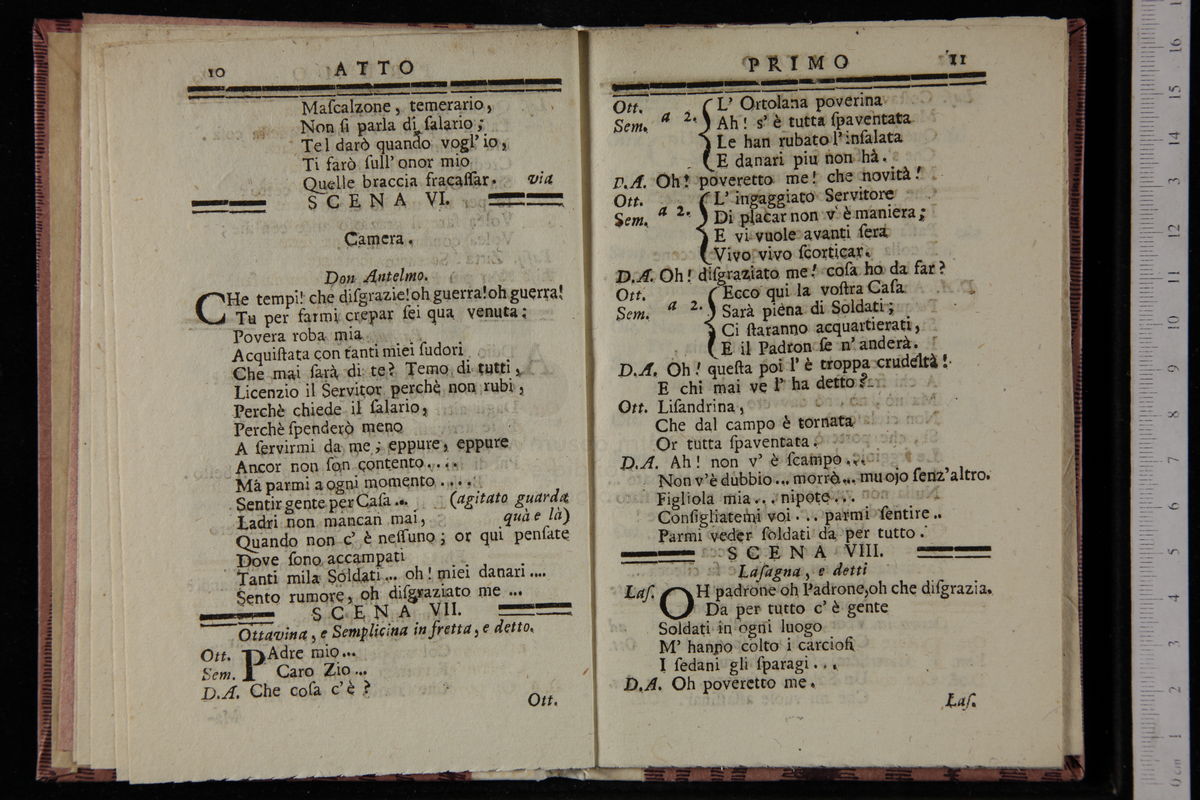 10 ATTO
Maſcalzone, temerario,
Non ſi parla di ſalario;
Tel darò quando vogl' io,
Ti farò ſull' onor mio
Quelle braccia fracaſſar. via
SCENA VI.
Camera.
Don Antelmo.
CHe tempi! che diſgrazie! oh guerra! oh guerra!
Tu per farmi crepar ſei qua venuta:
Povera roba mia
Acquiſtata con tanti miei ſudori
Che mai ſarà di te? Temo di tutti,
Licenzio il Servitor perchè non rubi,
Perchè chiede il ſalario,
Perchè ſpenderò meno
A ſervirmi da me; eppure, eppure
Ancor non ſon contento....
Má parmi a ogni momento ....
Sentir gente per Caſa... (agitato guarda
Ladri non mancan mai, quà e là)
Quando non c' è neſſuno; or qui penſate
Dove ſono accampati
Tanti mila Soldati... oh! miei danari....
Sento rumore, oh diſgraziato me ...
SCENA VII.
Ottavina, e Semplicina in fretta, e detto.
Ott. PAdre mio...
Sem. Caro Zio...
D.A. Che coſa c' è?
Ott.
PRIMO 11
Ott. L' Ortolana poverina
Sem. a 2. Ah! s' è tutta ſpaventata
Le han rubato l' inſalata
E danari piu non hà.
D.A. Oh! poveretto me! che novità!
Ott. L' ingaggiato Servitore
Sem. a 2. Di placar non v' è maniera;
E vi vuole avanti ſera
Vivo vivo ſcorticar.
D.A. Oh! diſgraziato me! coſa ho da far?
Ott. Ecco qui la voſtra Caſa
Sem. a 2. Sarà piena di Soldati;
Ci ſtaranno acquartierati,
E il Padron ſe n' anderà.
D.A. Oh! queſta poi l' è troppa crudeltà!
E chi mai ve l' ha detto?
Ott. Liſandrina,
Che dal campo è tornata
Or tutta ſpaventata.
D.A. Ah! non v' è ſcampo...
Non v' è dubbio... morrò... muojo ſenz' altro.
Figliola mia... nipote...
Conſigliatemi voi... parmi ſentire..
Parmi veder ſoldati da per tutto.
SCENA VIII.
Laſagna, e detti
Laſ. OH padrone oh Padrone, oh che diſgrazia.
Da per tutto c' è gente
Soldati in ogni luogo
M' hanno colto i carcioſi
I ſedani gli ſparagi...
D.A. Oh poveretto me.
Laſ.